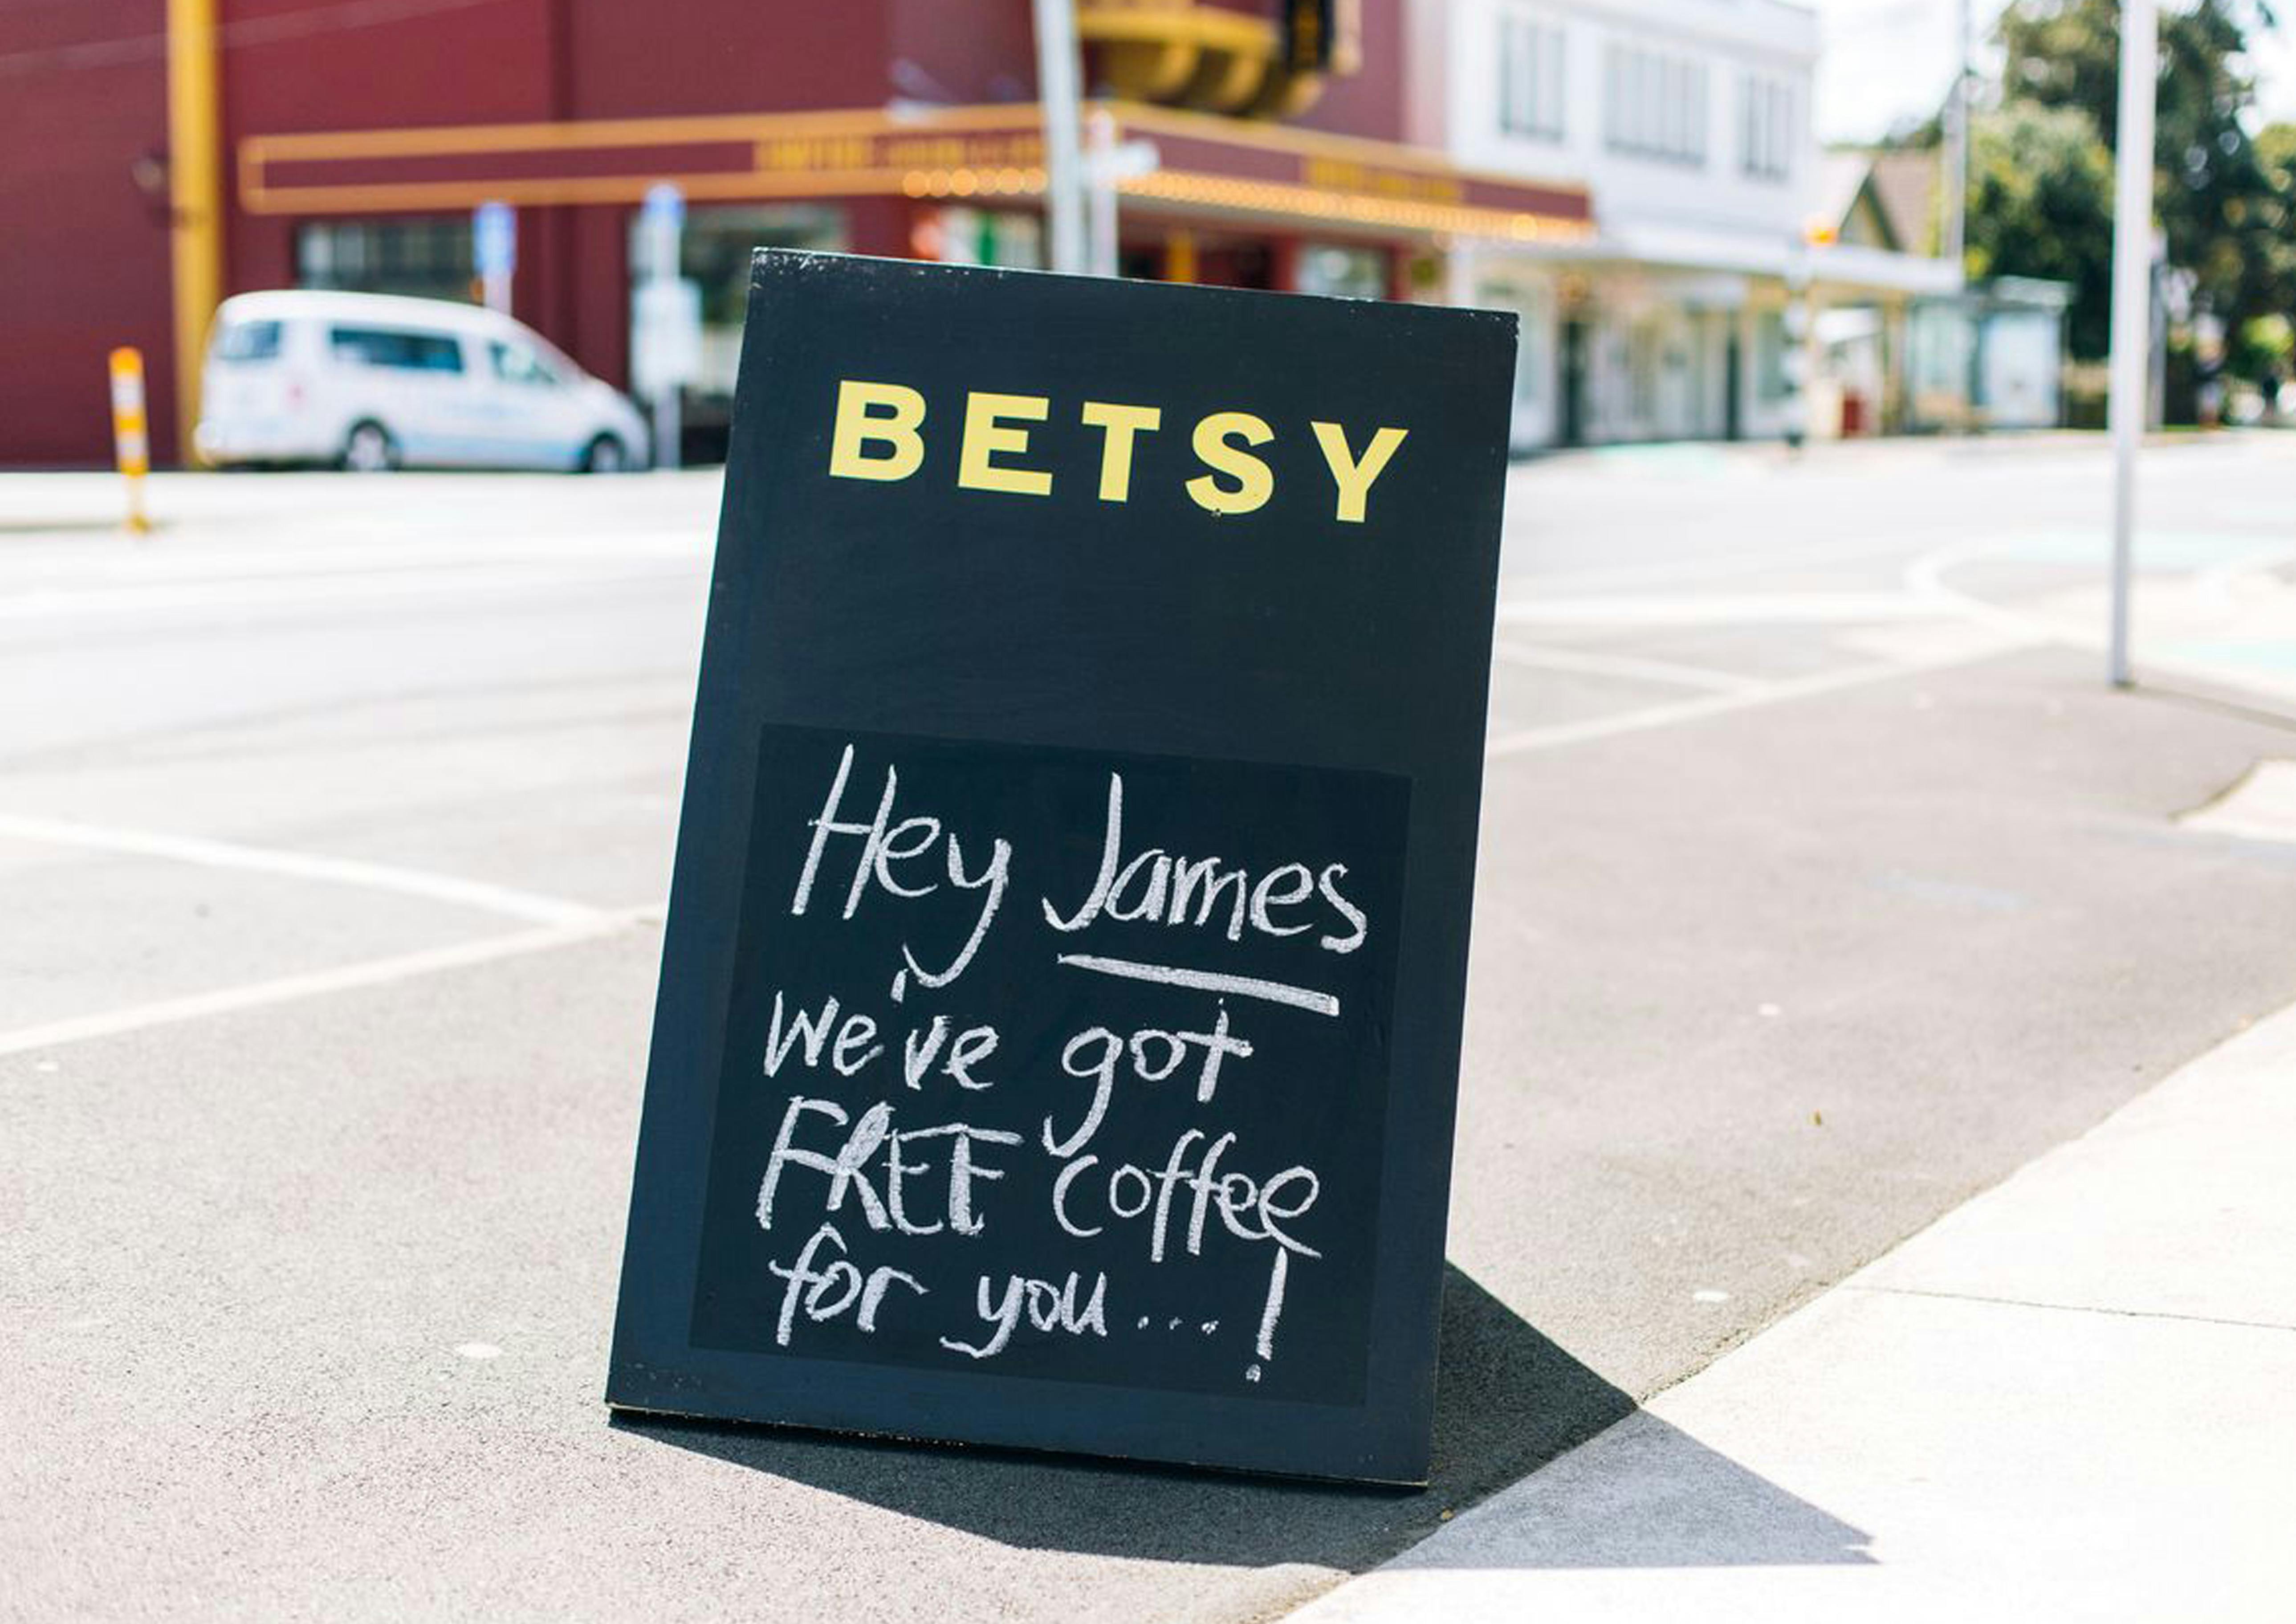 BETSY
Hey James
we've got
FREE coffee
for you...!